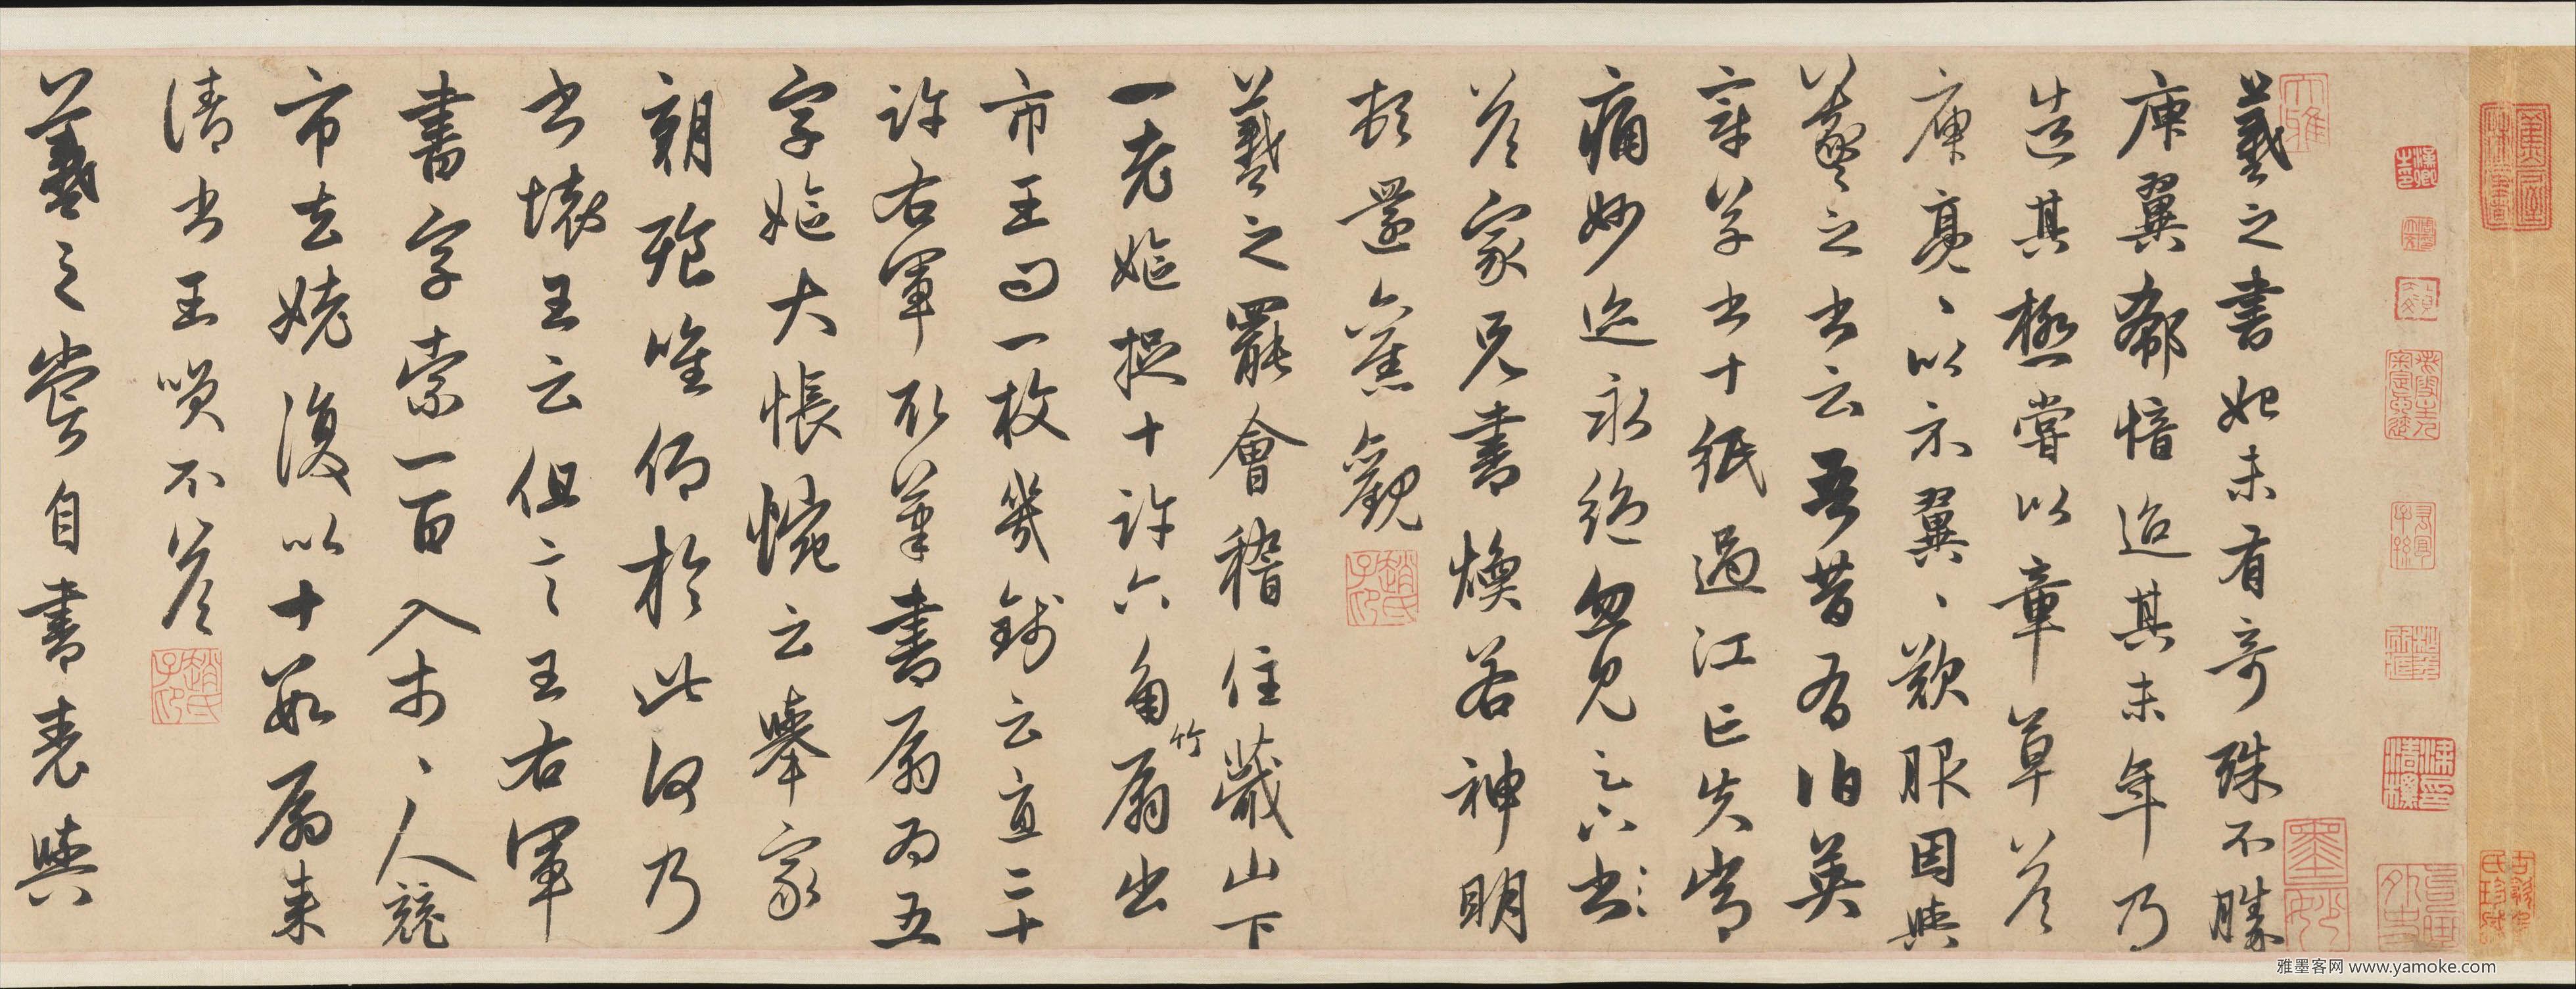 羲之書始未有奇殊不勝
庾翼郗愔迨其末年乃
造其極嘗以章草答
庾亮、以示翼、歎服因與
羲之書云吾昔有伯英
章草書十紙過江亡失常
痛妙迹永絕忽見足下書
答家兄書煥若神明
頓還舊觀
趙氏子昂
羲之罷會稽住蕺山下
一老嫗捉十許六角竹扇出
市王問一枚幾錢云直二十
許右軍取筆書扇為五
字嫗大悵惋云舉家
朝飧唯仰於此何乃
書壞王云但言王右軍
書字索一百入市、人競
市去姥復以十數扇來
請書王笑不答
趙氏子昂
羲之嘗自書表與
大雅
墨妙
雅墨客网 www.yamoke.com